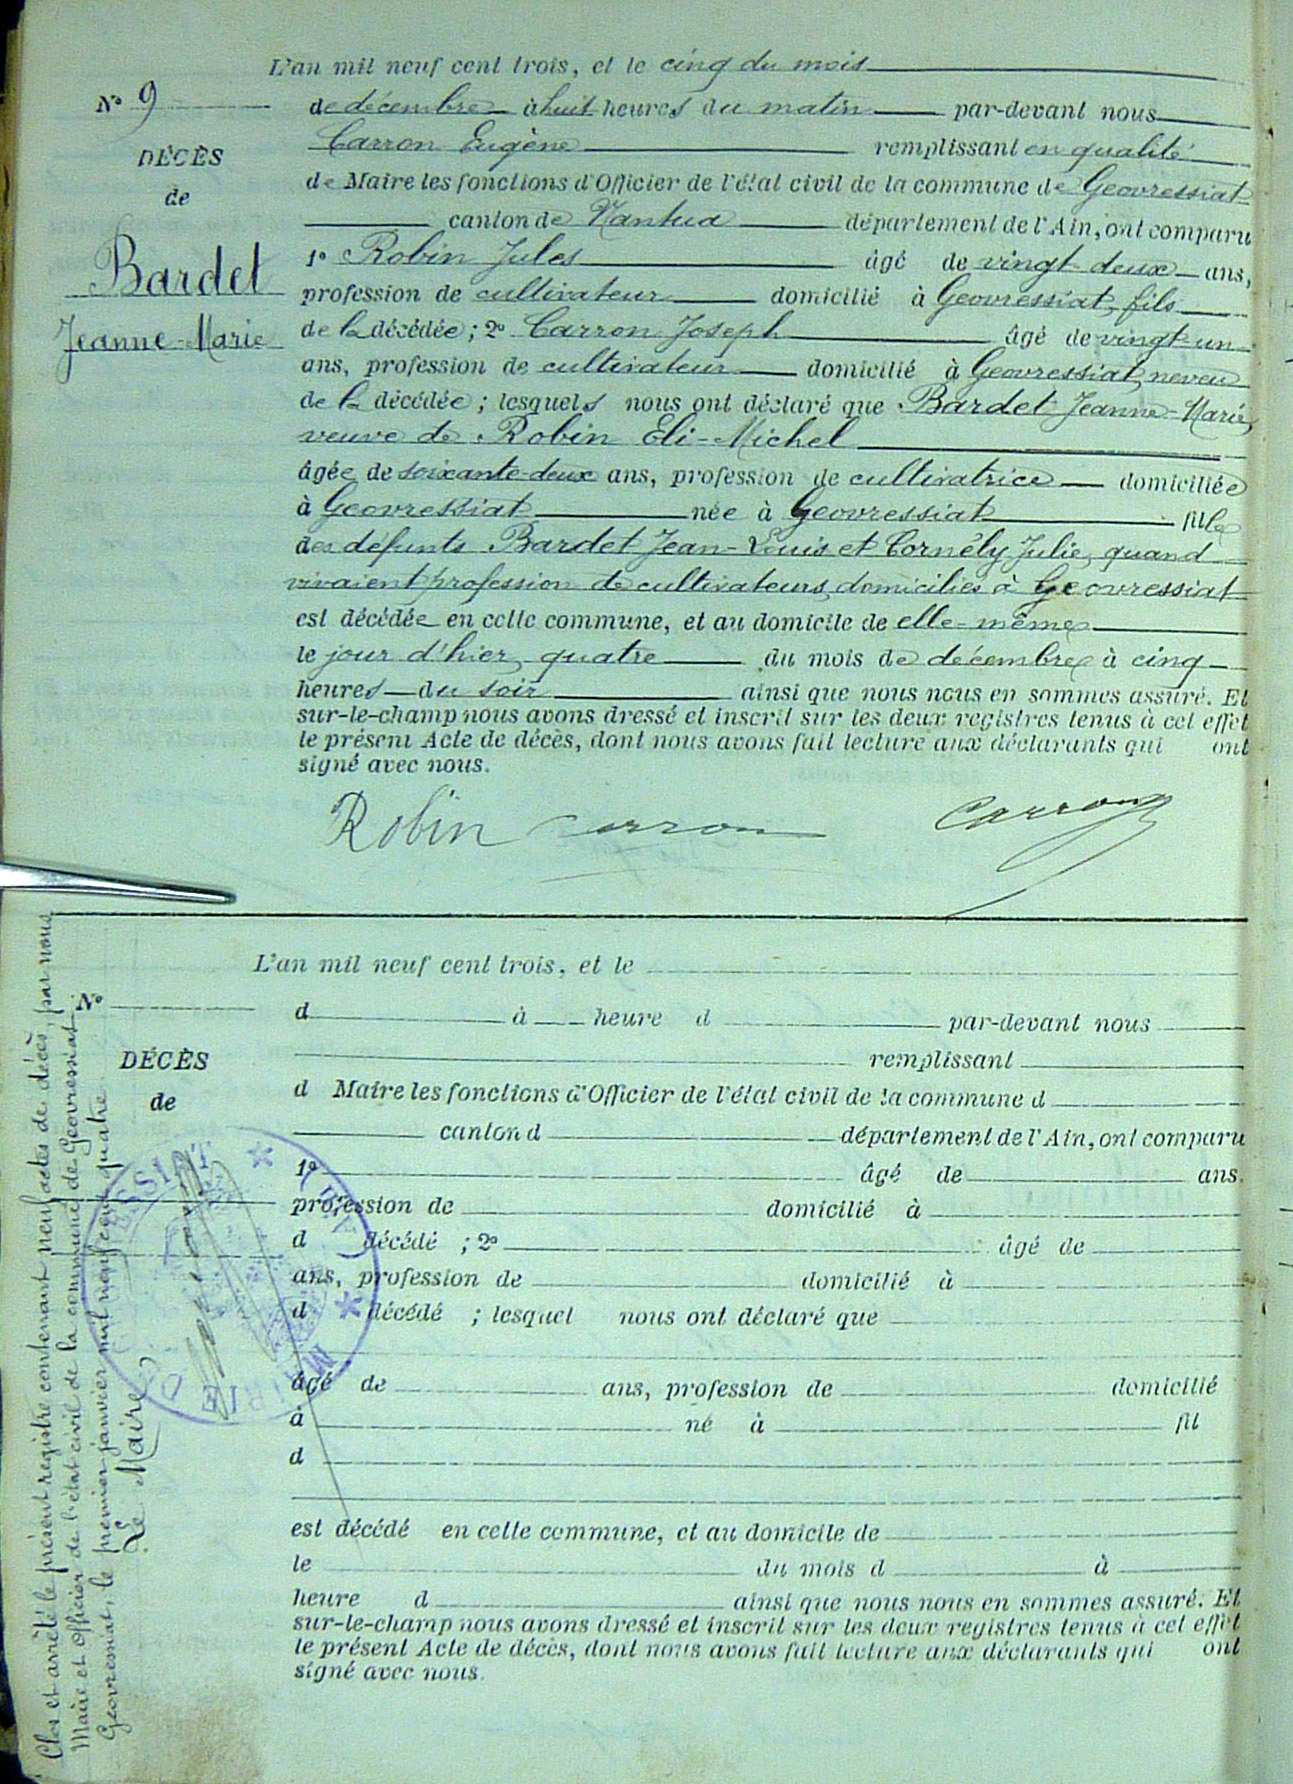 L'an mil neuf cent trois, et le cinq du mois
N° 9
de décembre à huit heures du matin par-devant nous
Carron Eugène remplissant en qualité
DÉCÈS
de Maire les fonctions d'Officier de l'état civil de la commune de Geovressiat
de
canton de Nantua département de l'Ain, ont comparu
Bardet
1° Robin Jules âgé de vingt deux ans,
profession de cultivateur domicilié à Geovressiat, fils
Jeanne-Marie
de la décédée ; 2° Carron Joseph âgé de vingt-un
ans, profession de cultivateur domicilié à Geovressiat, neveu
de la décédée ; lesquels nous ont déclaré que Bardet Jeanne-Marie,
veuve de Robin Eli-Michel
âgée de soixante-deux ans, profession de cultivatrice domiciliée
à Geovressiat née à Geovressiat fille
des défunts Bardet Jean-Louis et Cornély Julie, quand
vivaient profession de cultivateurs, domiciliés à Geovressiat
est décédée en cette commune, et au domicile de elle-même
le jour d'hier, quatre du mois de décembre à cinq
heures du soir ainsi que nous nous en sommes assuré. Et
sur-le-champ nous avons dressé et inscrit sur les deux registres tenus à cet effet
le présent Acte de décès, dont nous avons fait lecture aux déclarants qui ont
signé avec nous.
Robin Carron Carron
L'an mil neuf cent trois, et le
N°
d à heure d par-devant nous
DÉCÈS
remplissant
de
d Maire les fonctions d'Officier de l'état civil de la commune d
canton d département de l'Ain, ont comparu
1° âgé de ans.
profession de domicilié à
d décédé ; 2° âgé de
ans, profession de domicilié à
d décédé ; lesquel nous ont déclaré que
âgé de ans, profession de domicilié
à né à fil
d
est décédé en cette commune, et au domicile de
le du mois d à
heure d ainsi que nous nous en sommes assuré. Et
sur-le-champ nous avons dressé et inscrit sur les deux registres tenus à cet effet
le présent Acte de décès, dont nous avons fait lecture aux déclarants qui ont
signé avec nous.
Clos et arrêté le présent registre contenant neuf actes de décès, par nous
Maire et Officier de l'état civil de la commune de Geovressiat
Geovressiat, le premier janvier mil neuf cent quatre
Le Maire
MAIRIE DE